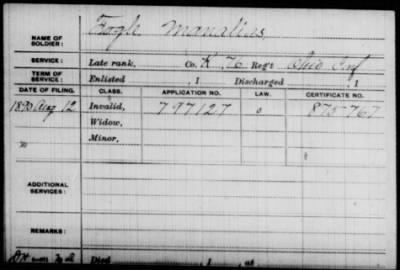 NAME OF SOLDIER: Fogle Manalius
SERVICE: Late rank, Co. K. 76 Reg't Ohio Inf
TERM OF SERVICE: Enlisted , 1 Discharged , 1
DATE OF FILING. CLASS. APPLICATION NO. LAW. CERTIFICATE NO.
1890 Aug 12 Invalid, 797127 875767
Widow,
Minor,
ADDITIONAL SERVICES:
REMARKS:
Died , 1 , at